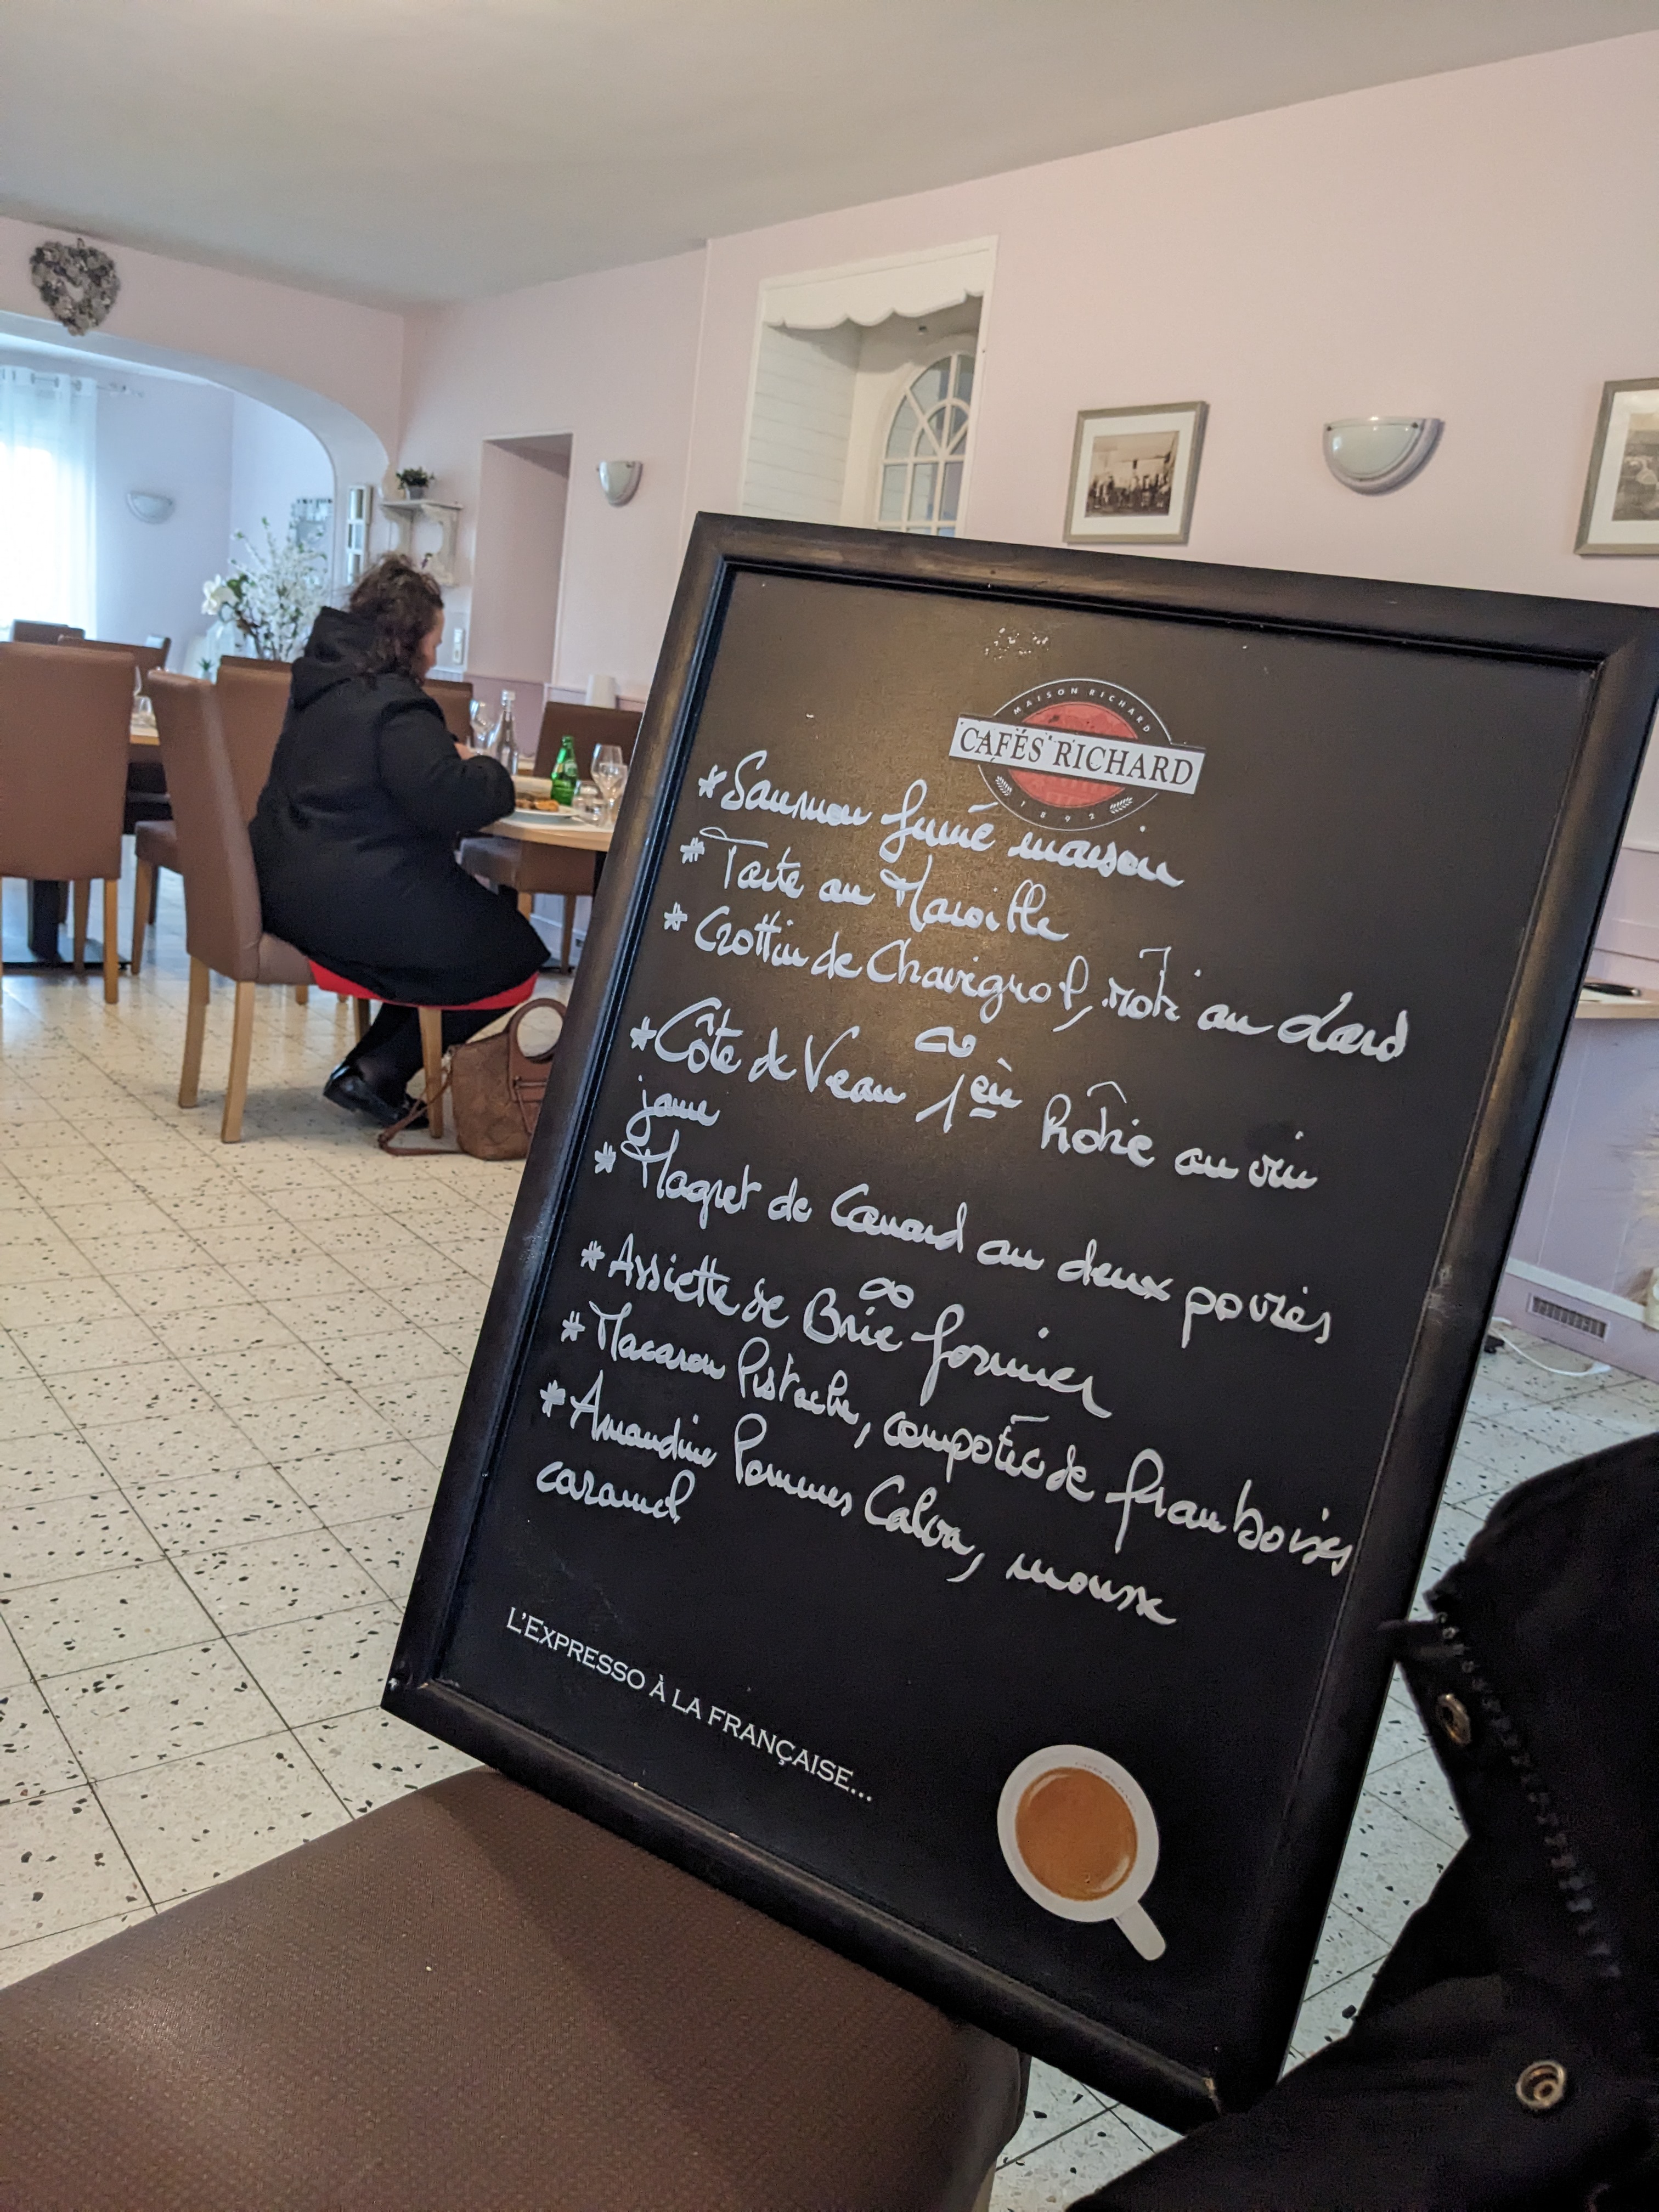 MAISON RICHARD
CAFÉS RICHARD
1892
*Saumon fumé maison
*Tarte au Maroille
*Crottin de Chavignol, rôti au Lard
∞
*Côte de Veau 1ère Rôtie au vin
jaune
*Magret de Canard au deux poivres
∞
*Assiette de Brie fermier
*Macaron Pistache, compotée de framboises
*Amandine Pommes Calva, mousse
caramel
L'EXPRESSO À LA FRANÇAISE...